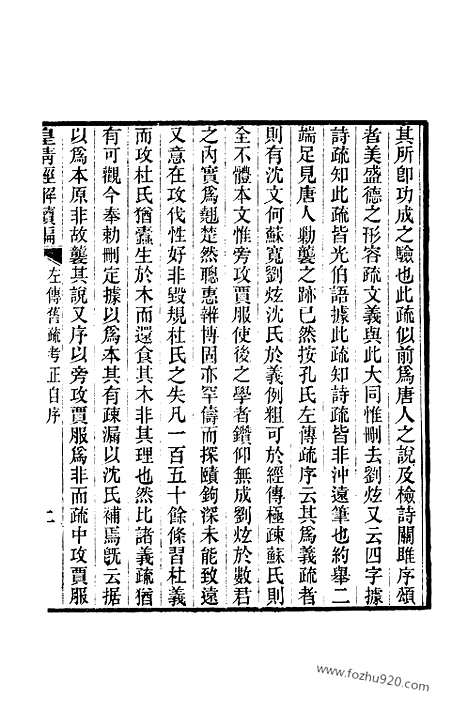 其所卽功成之驗也此疏似前爲唐人之說及檢詩關雎序頌
者美盛德之形容疏文義與此大同惟刪去劉炫又云四字據
詩疏知此疏皆光伯語據此疏知詩疏皆非沖遠筆也約舉二
端足見唐人勦襲之跡已然按孔氏左傳疏序云其爲義疏者
則有沈文何蘇寬劉炫沈氏於義例粗可於經傳極疎蘇氏則
全不體本文惟旁攻賈服使後之學者鑽仰無成劉炫於數君
之內實爲翹楚然聰惠辯博固亦罕儔而探賾鉤深未能致遠
又意在攻伐性好非毀規杜氏之失凡一百五十餘條習杜義
而攻杜氏猶蠹生於木而還食其木非其理也然比諸義疏猶
有可觀今奉勅刪定據以爲本其有疎漏以沈氏補焉旣云据
以爲本原非故襲其說又序以旁攻賈服爲非而疏中攻賈服
皇淸經解續編
左傳舊疏考正自序
二
www.fozhu920.com